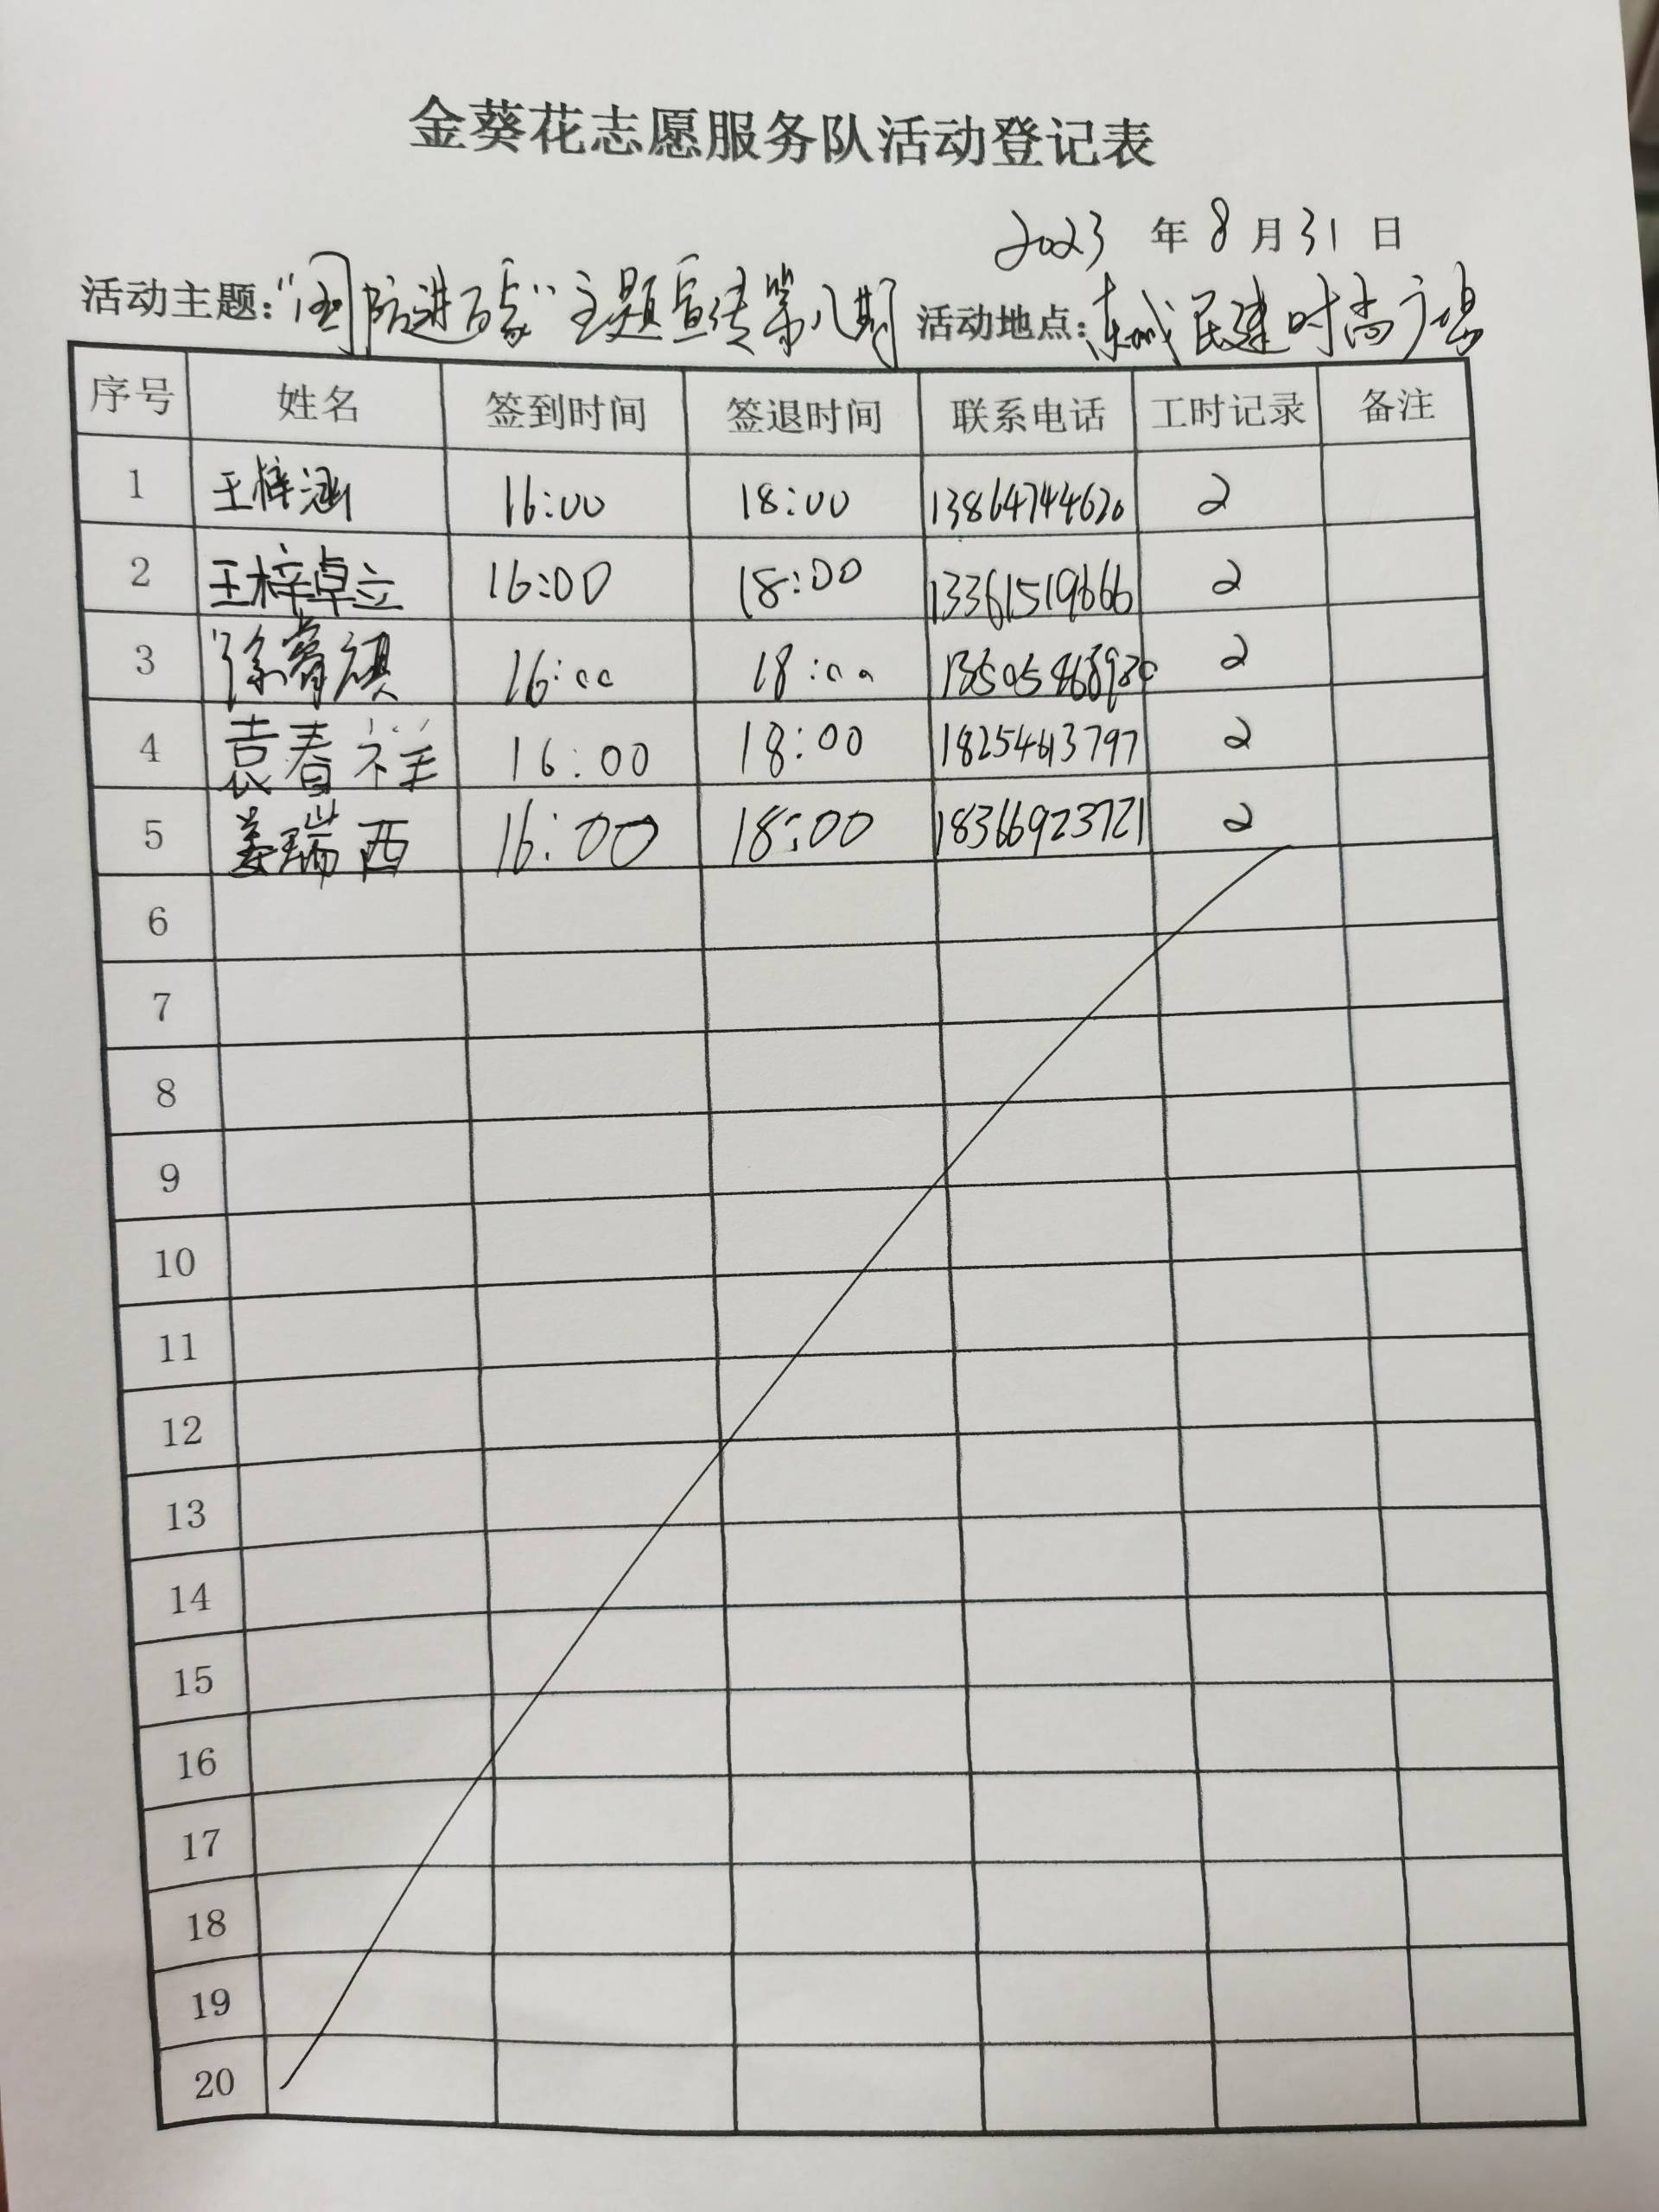 金葵花志愿服务队活动登记表
2023 年 8 月 31 日
活动主题：“国防进百家”主题宣传第八期 活动地点：东城民建时尚广场
序号 姓名 签到时间 签退时间 联系电话 工时记录 备注
1 王梓涵 16:00 18:00 13864744620 2
2 王梓卓立 16:00 18:00 13361519666 2
3 16:00 18:00 2
4 袁春祥 16:00 18:00 2
5 姜瑞西 16:00 18:00 18366923721 2
6
7
8
9
10
11
12
13
14
15
16
17
18
19
20